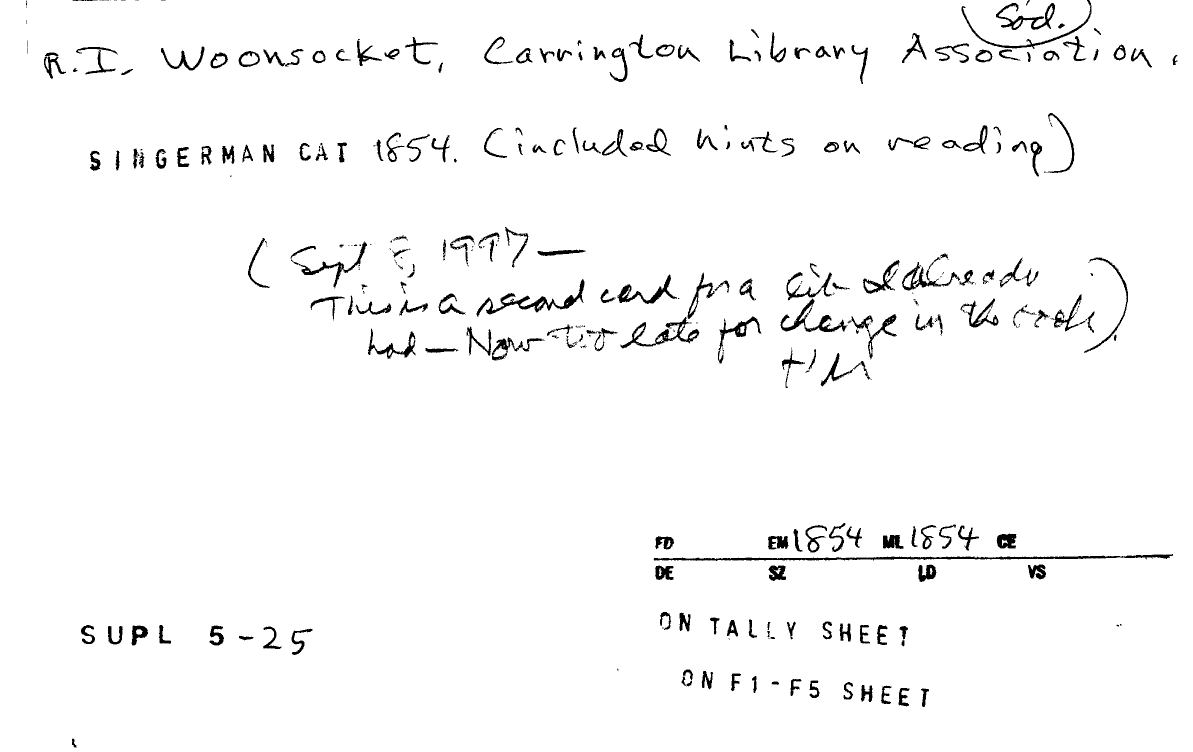 Sod.
R.I. Woonsocket, Carrington Library Association.
SINGERMAN CAT 1854. (included hints on reading)
(Sept 8, 1997—
This is a second card for a lib I already
had—Now too late for change in the book).
FD EM 1854 ML 1854 CE
DE SZ LD VS
ON TALLY SHEET
SUPL 5-25
ON F1-F5 SHEET